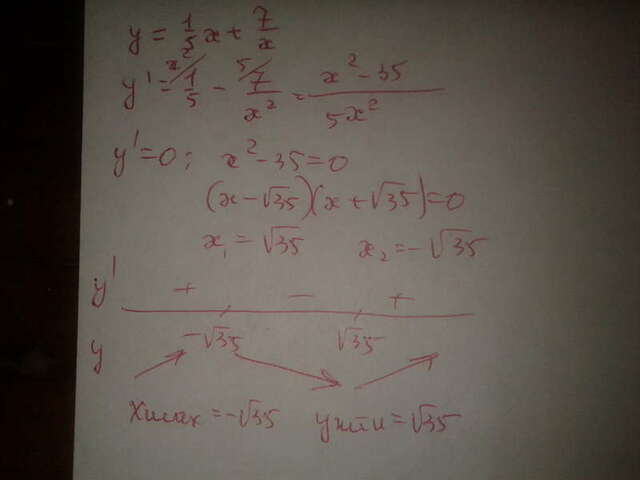 y = 1/5 x + 7/x
y' = x²/ 1/5 - 5/ 7/x² = (x² - 35)/(5x²)
y' = 0; x² - 35 = 0
(x - √35)(x + √35) = 0
x₁ = √35 x₂ = -√35
y' + - +
-√35 √35
y
Xmax = -√35 ymin = √35